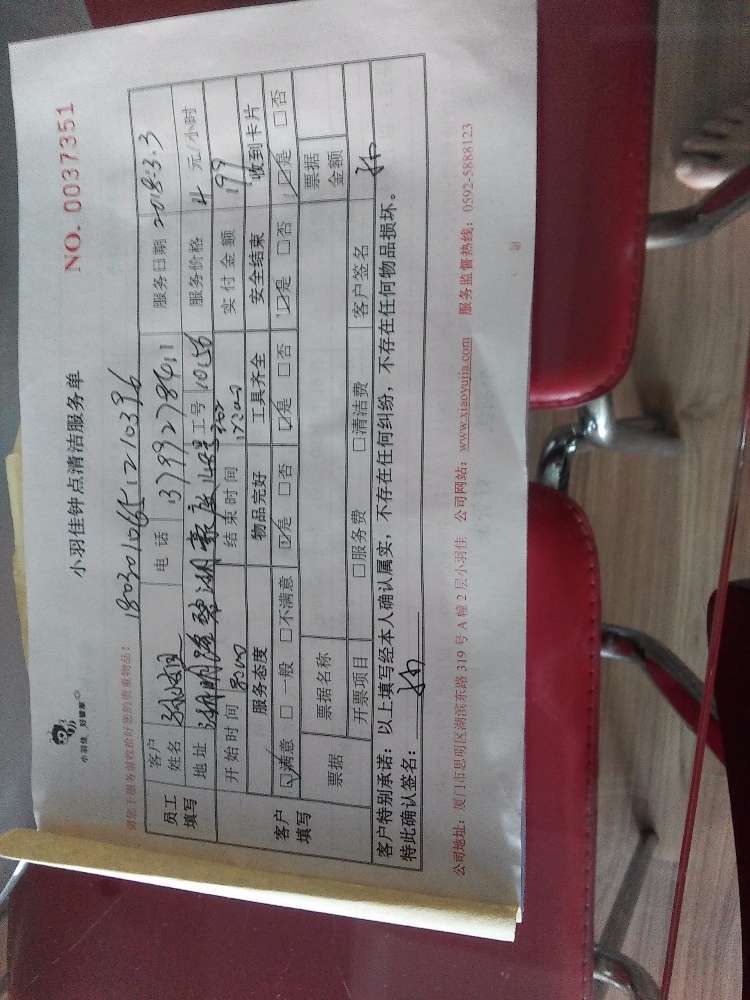 小羽佳 好管家
小羽佳钟点清洁服务单
NO. 0037351
请您于服务前收捡好您的贵重物品：
1803010651210396
员工填写
客户姓名 电话 13799278411 服务日期 2018.3.3
地址 工号 10156 服务价格 4 元/小时
开始时间 结束时间 实付金额 199
客户填写
服务态度 物品完好 工具齐全 安全结束 收到卡片
☑满意 □一般 □不满意 ☑是 □否 ☑是 □否 ☑是 □否 ☑是 □否
票据 票据名称 票据金额
开票项目 □服务费 □清洁费 客户签名
客户特别承诺：以上填写经本人确认属实，不存在任何纠纷，不存在任何物品损坏。
特此确认签名：
公司地址：厦门市思明区湖滨东路 319 号 A 幢 2 层小羽佳 公司网站：www.xiaoyujia.com 服务监督热线：0592-5888123